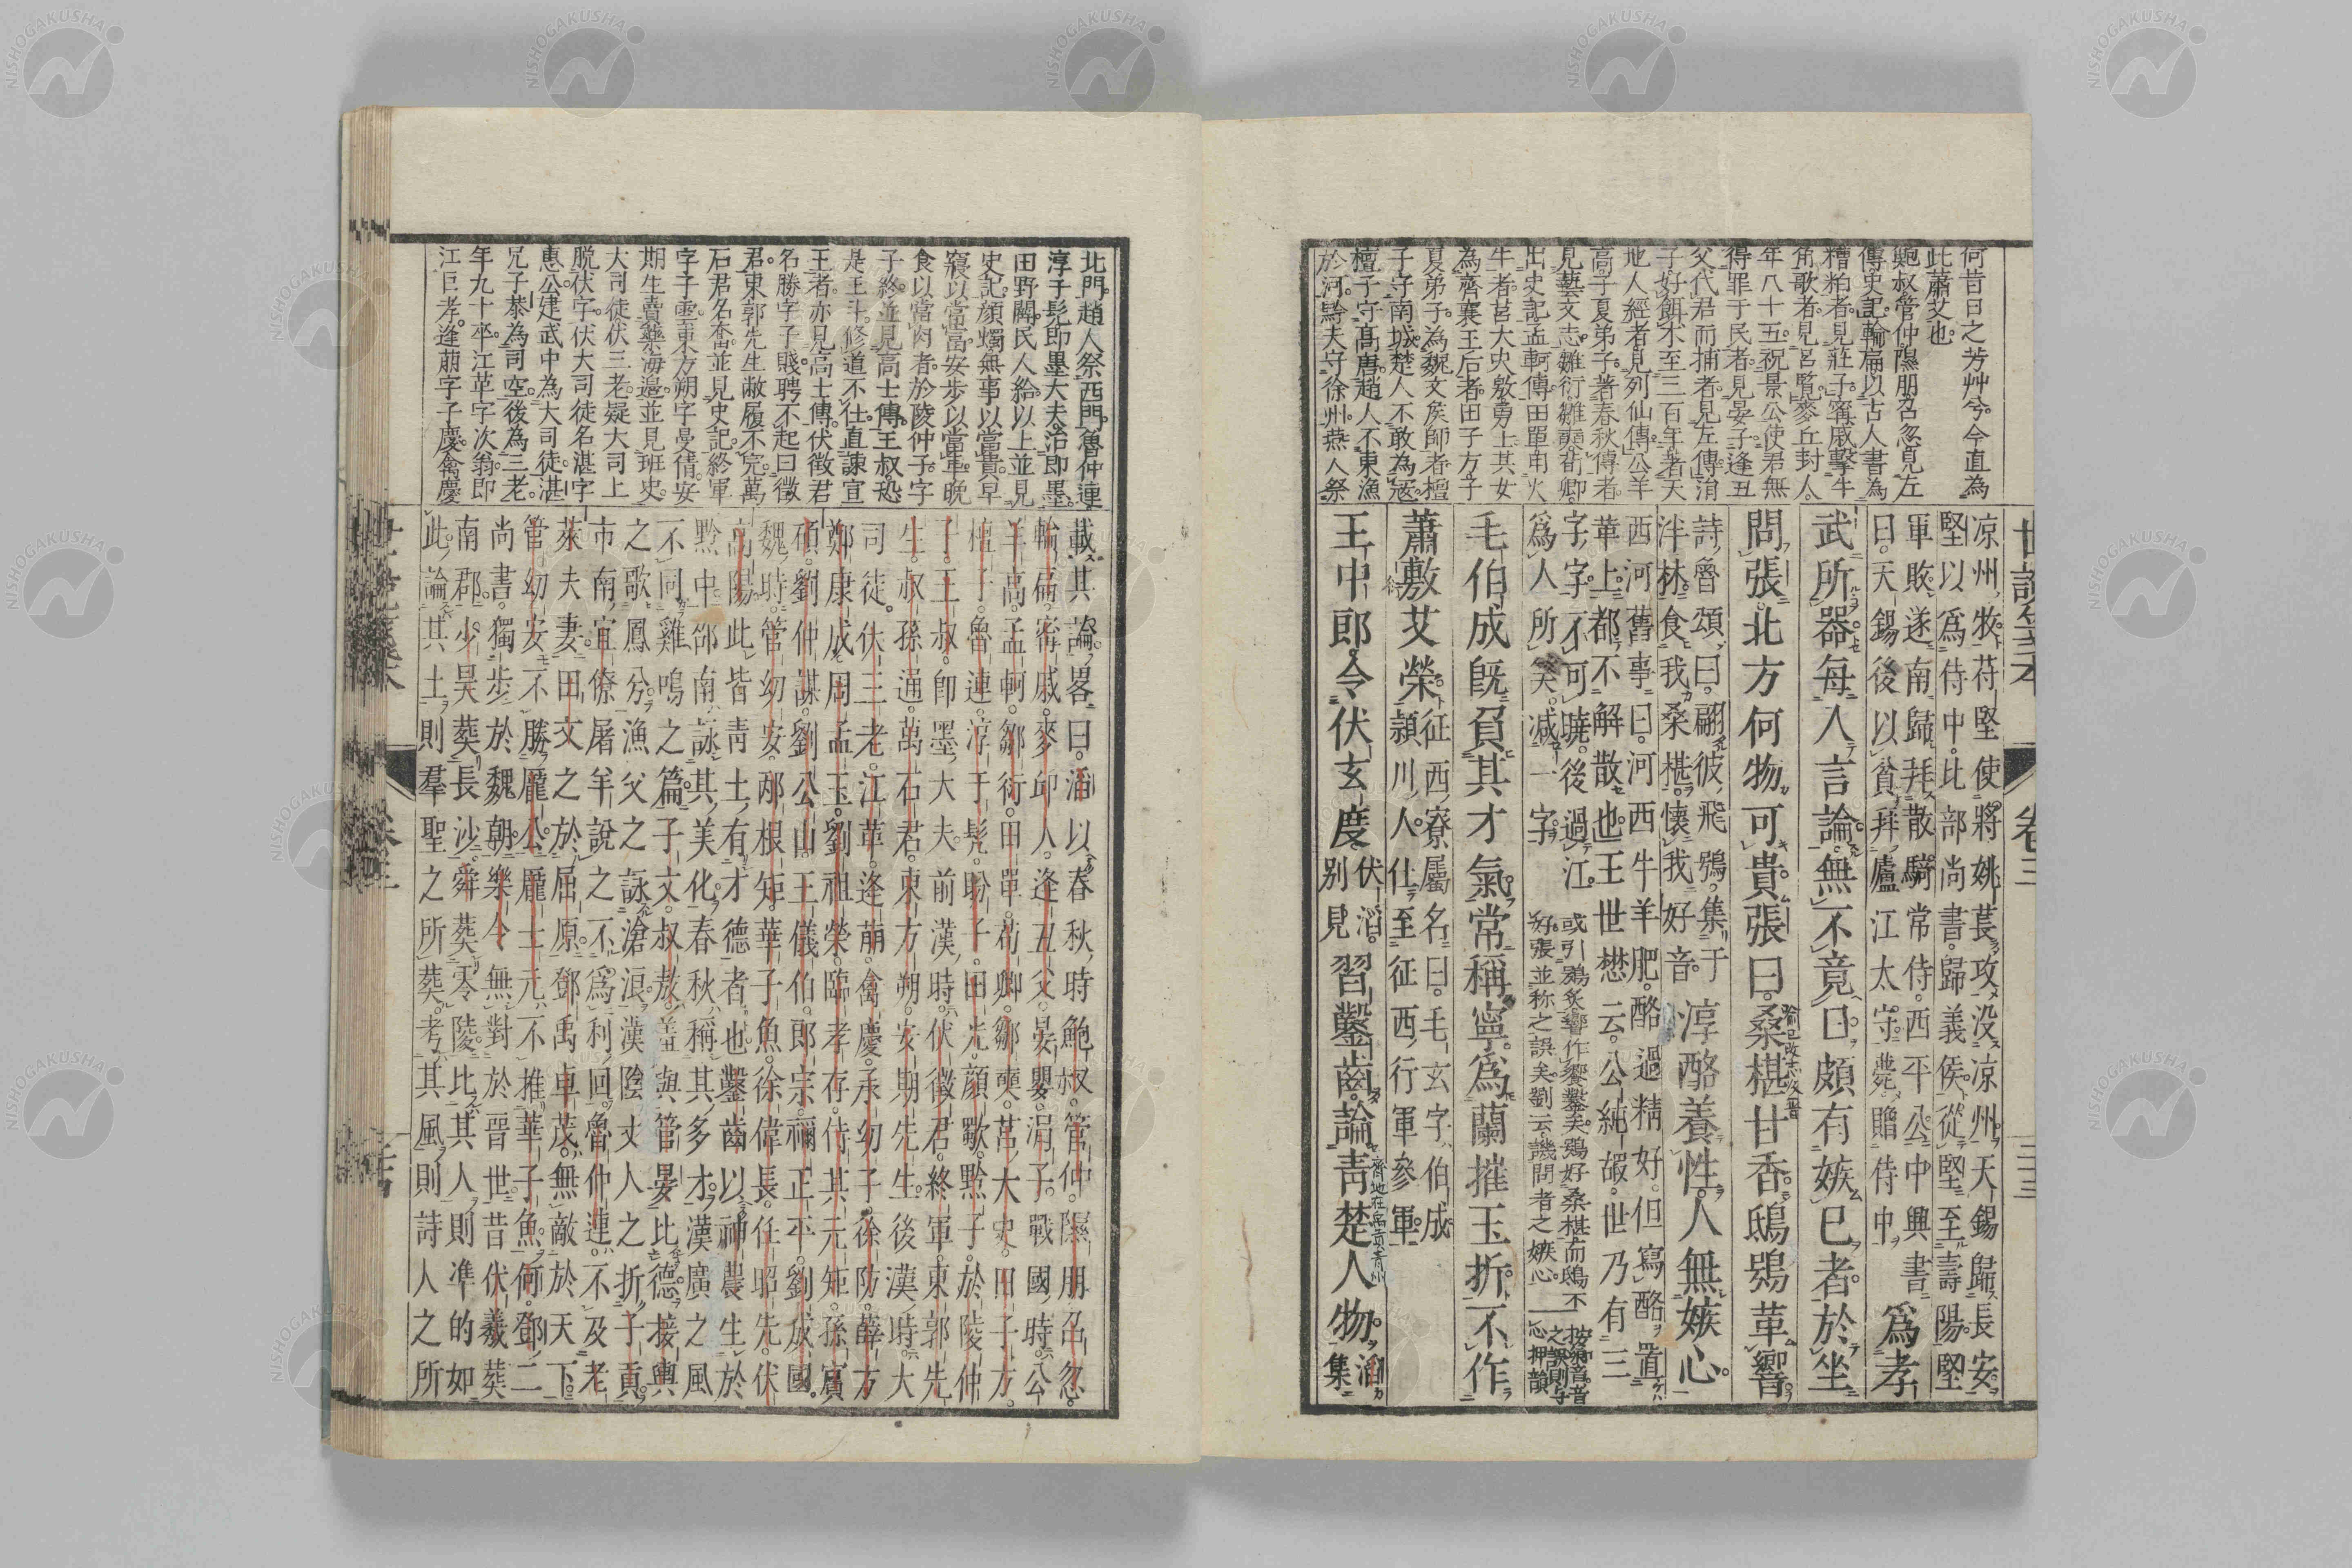 何昔日之芳艸兮今直為
此蕭艾也
鮑叔管仲隰朋召忽見左
傳史記輪扁以古人書為
糟粕者見莊子甯戚擊牛
角歌者見呂覧麥丘封人
年八十五祝景公使君無
得罪于民者見晏子逢丑
父代君而捕者見左傳涓
子好餌朮至三百年者天
地人經者見列仙傳公羊
高子夏弟子著春秋傳者
見藝文志雛衍雛奭荀卿
出史記孟軻傳田單用火
牛者莒大史敫勇士其女
為齊襄王后者田子方子
夏弟子為魏文矦師者檀
子守南城楚人不敢為冦
檀子守高唐趙人不東漁
於河黔夫守徐州燕人祭
卷三
涼州牧苻堅使將姚萇攻没涼州天錫歸長安
堅以爲侍中比部尚書歸義侯從堅至壽陽堅
軍敗遂南歸拜散騎常侍西平公中興書
曰天錫後以貧拜廬江太守薨贈侍中
爲孝
武所器每入言論無不竟日頗有嫉已者於坐
問張北方何物可貴張曰桑椹甘香鴟鴞革響
詩魯頌曰翩彼飛鴞集于
泮林食我桑椹懷我好音
淳酪養性人無嫉心
西河舊事曰河西牛羊肥酪過精好但寫酪置
華上都不解散也王世懋云公純嘏世乃有三
字字不可曉後過江
爲人所笑減一字
或引鴞炙響作饗鑿矣鴞好桑椹而鴟不
好張並称之誤矣劉云譏問者之嫉心
毛伯成既負其才氣常稱寧爲蘭摧玉折不作
蕭敷艾榮
征西寮屬名曰毛玄字伯成
潁川人仕至征西行軍參軍
王中郎令伏玄度
伏滔
別見
習鑿齒論青楚人物
滔
集
北門趙人祭西門魯仲連
淳于髡即墨大夫治即墨
田野闢民人給以上並見
史記顔斶無事以當貴早
寢以當富安步以當車晩
食以當肉者於陵仲子字
子終並見高士傳王叔恐
是王斗修道不仕直諌宣
王者亦見高士傳伏徴君
名勝字子賤聘不起曰徴
君東郭先生敝履不完萬
石君名奮並見史記終軍
字子雲東方朔字曼倩安
期生賣藥海邉並見班史
大司徒伏三老疑大司上
脱伏字伏大司徒名湛字
惠公建武中為大司徒湛
兄子恭為司空後為三老
年九十卒江革字次翁即
江巨孝逢萠字子慶禽慶
載其論畧曰滔以春秋時鮑叔管仲隰朋召忽
輪扁甯戚麥邱人逢丑父晏嬰涓子戰國時公
羊高孟軻鄒衍田單荀卿鄒奭莒大史田子方
檀子魯連淳于髡盼子田光顔歜黔子於陵仲
子王叔即墨大夫前漢時伏徴君終軍東郭先
生叔孫通萬石君東方朔安期先生後漢時大
司徒伏三老江革逢萠禽慶承幼子徐防薛方
鄭康成周孟玉劉祖榮臨孝存侍其元矩孫賓
碩劉仲謀劉公山王儀伯郎宗禰正平劉成國
魏時管幼安邴根矩華子魚徐偉長任昭先伏
高陽此皆青土有才德者也鑿齒以神農生於
黔中邵南詠其美化春秋稱其多才漢廣之風
不同雞鳴之篇子文叔敖羞與管晏比德接輿
之歌鳳兮漁父之詠滄浪漢陰丈人之折子貢
市南宜僚屠羊說之不爲利回魯仲連不及老
萊夫妻田文之於屈原鄧禹卓茂無敵於天下
管幼安不勝龐公龐士元不推華子魚何鄧二
尚書獨步於魏朝樂令無對於晉世昔伏羲葬
南郡少昊葬長沙舜葬零陵比其人則凖的如
此論其土則羣聖之所葬考其風則詩人之所